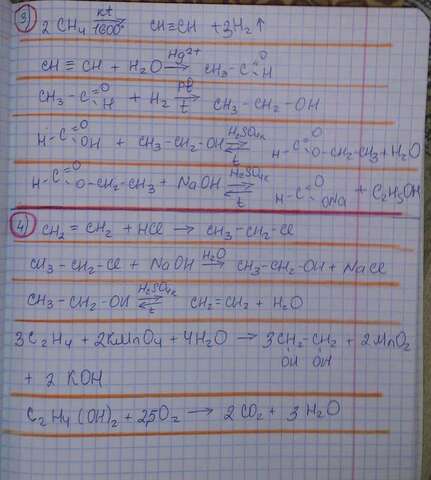 3) 2 CH4 kt 1600° CH≡CH + 3H2↑
CH ≡ CH + H2O Hg2+ → CH3 - C =O H
CH3 - C =O H + H2 pt t → CH3 - CH2 - OH
H - C =O OH + CH3 - CH2 - OH H2SO4k ⇌ t H - C =O O - CH2 - CH3 + H2O
H - C =O O - CH2 - CH3 + NaOH H2SO4k ⇌ t H - C =O ONa + C2H5OH
4) CH2 = CH2 + HCl → CH3 - CH2 - Cl
CH3 - CH2 - Cl + NaOH H2O → CH3 - CH2 - OH + NaCl
CH3 - CH2 - OH H2SO4k ⇌ t CH2 = CH2 + H2O
3C2H4 + 2KMnO4 + 4H2O → 3CH2 - CH2 + 2MnO2
OH OH
+ 2 KOH
C2H4(OH)2 + 2,5O2 → 2CO2 + 3H2O